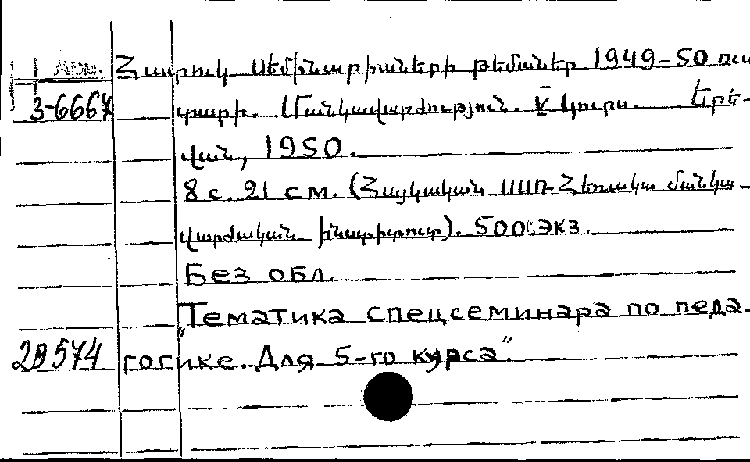 Հատուկ սեմինարիաների թեմաներ 1949-50 ուս
3-6667 տարի. Մանկավարժություն. V կուրս. Երե-
վան, 1950.
8 с. 21 см. (Հայկական ՍՍՌ Հեռակա մանկա-
վարժական ինստիտուտ). 500 экз.
Без обл.
„Тематика спецсеминара по педа-
28574 гогике. Для 5-го курса".